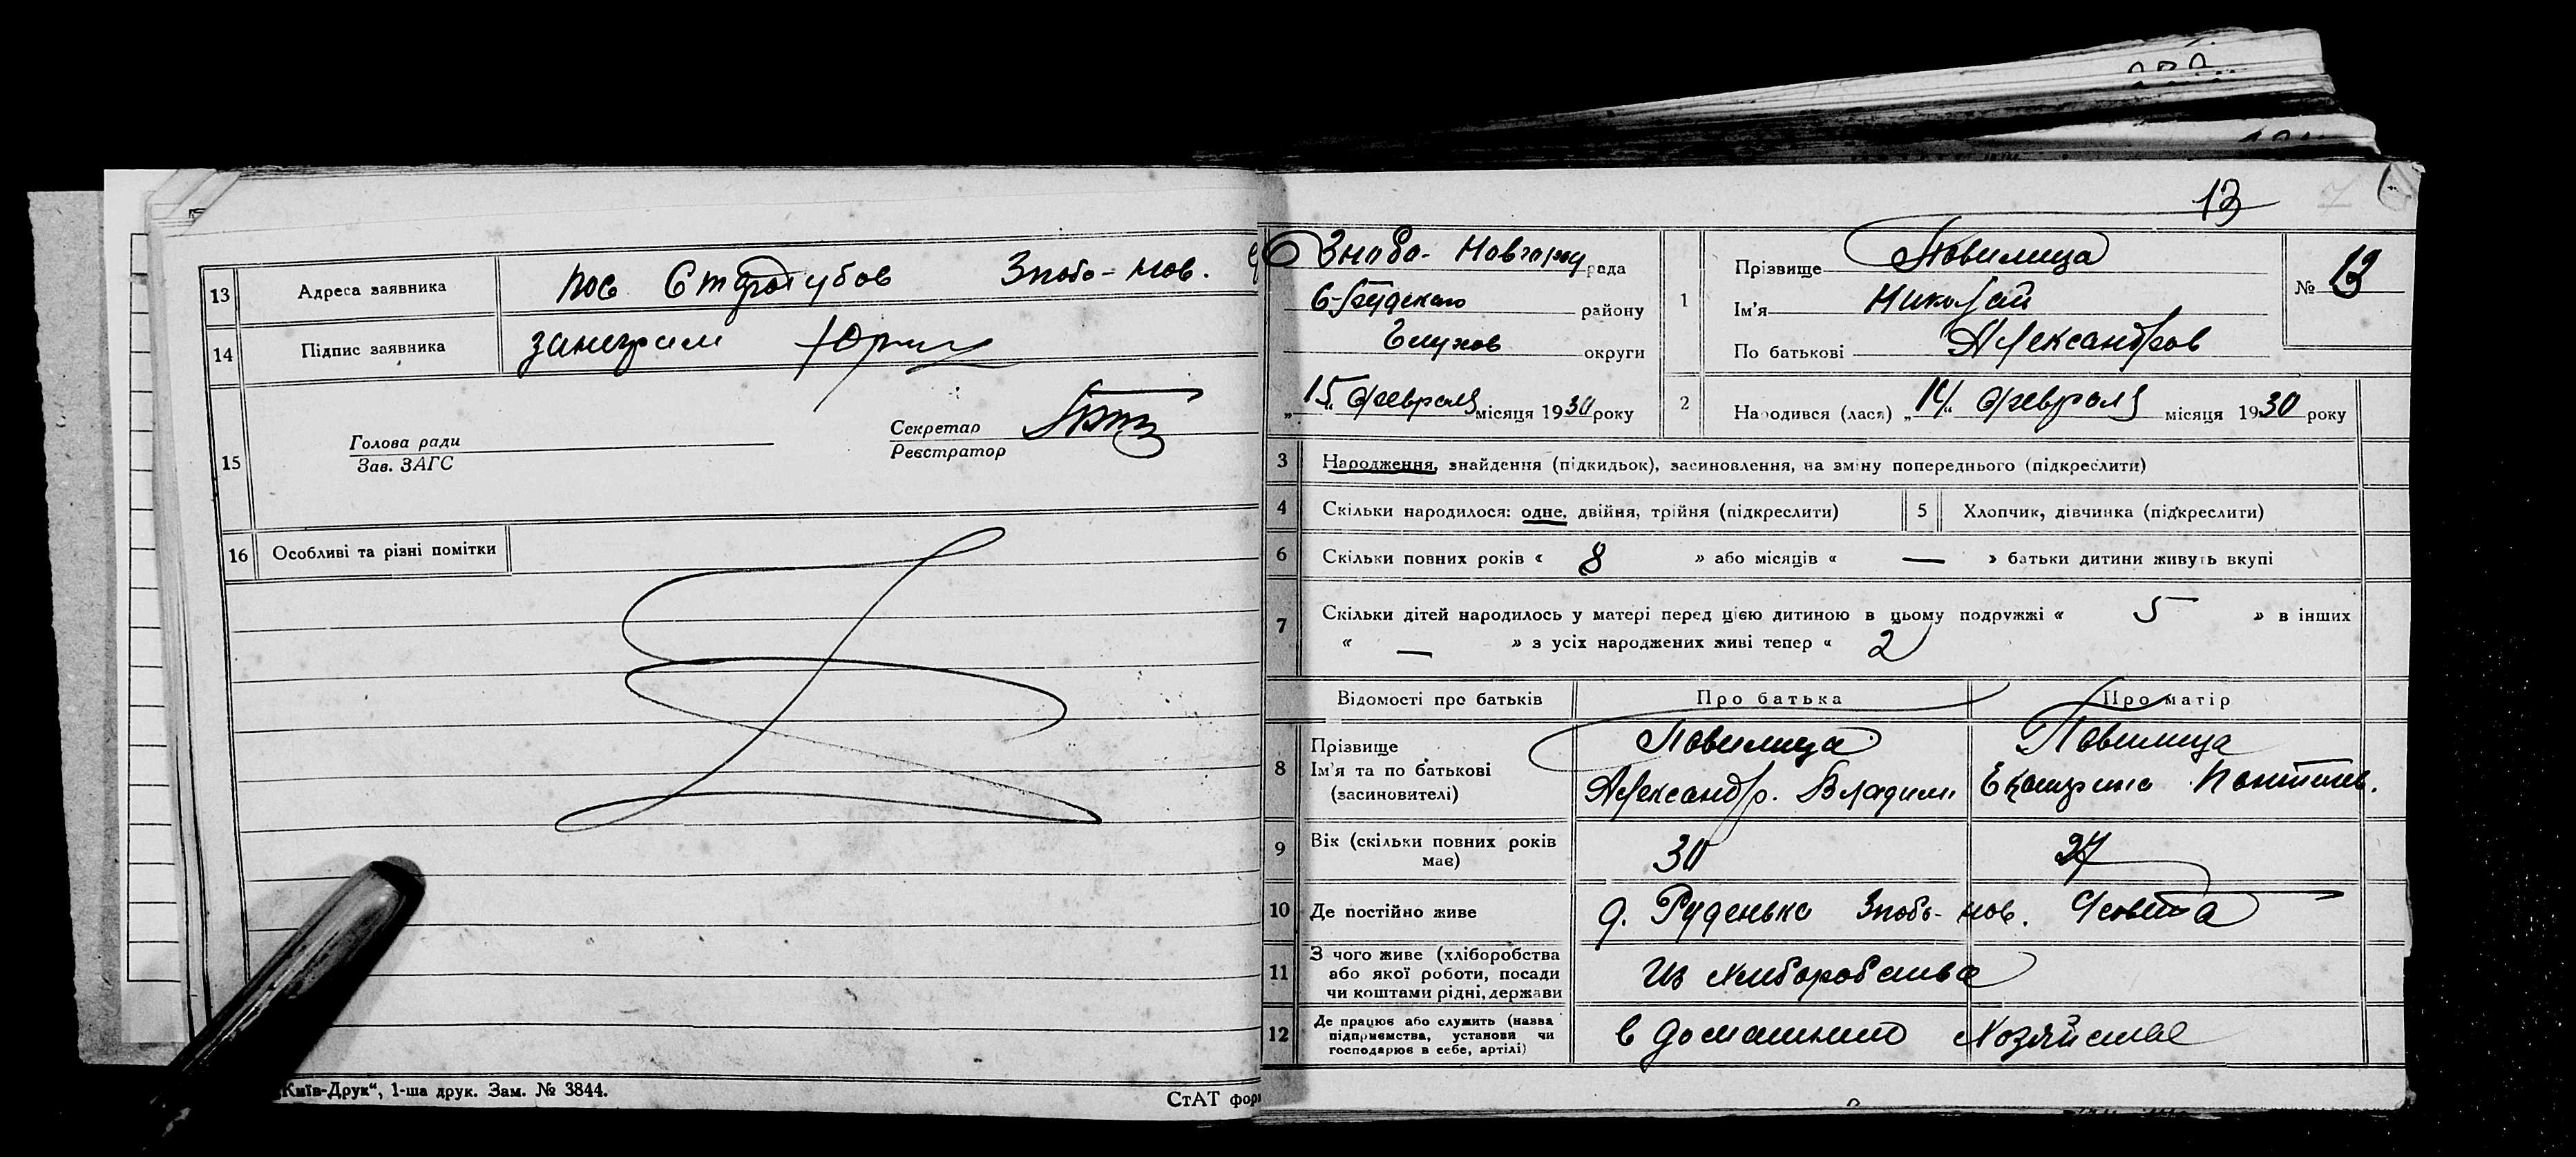 13 Адреса заявника пос Стародубов Знобо-Нов.
14 Підпис заявника
15 Голова ради
Зав. ЗАГС
Секретар
Реєстратор
16 Особливі та різні помітки
Київ-Друк“, 1-ша друк. Зам. № 3844.
СтАТ фор
13
Знобо-Новгород рада
С-Будского району
Глухов округи
„15 Февраля місяця 1930 року
1 Прізвище Повилица
Ім'я Николай
По батькові Александров
№ 13
2 Народився (лася) „14“ Февраля місяця 1930 року
3 Народження, знайдення (підкидьок), засиновлення, на зміну попереднього (підкреслити)
4 Скільки народилося: одне, двійня, трійня (підкреслити)
5 Хлопчик, дівчинка (підкреслити)
6 Скільки повних років « 8 » або місяців « — » батьки дитини живуть вкупі
7 Скільки дітей народилось у матері перед цією дитиною в цьому подружжі « 5 » в інших
« — » з усіх народжених живі тепер « 2
Відомості про батьків Про батька Про матір
8 Прізвище
Ім'я та по батькові
(засиновителі)
Повилица
Александр. Владими
Повилица
Екатерина
9 Вік (скільки повних років має) 30 27
10 Де постійно живе д. Руденько Знобь-нов. Совета
11 З чого живе (хліборобства
або якої роботи, посади
чи коштами рідні, держави
Из хлиборобства
12 Де працює або служить (назва
підприємства, установи чи
господарює в себе, артілі)
в домашнем Хозяйстве